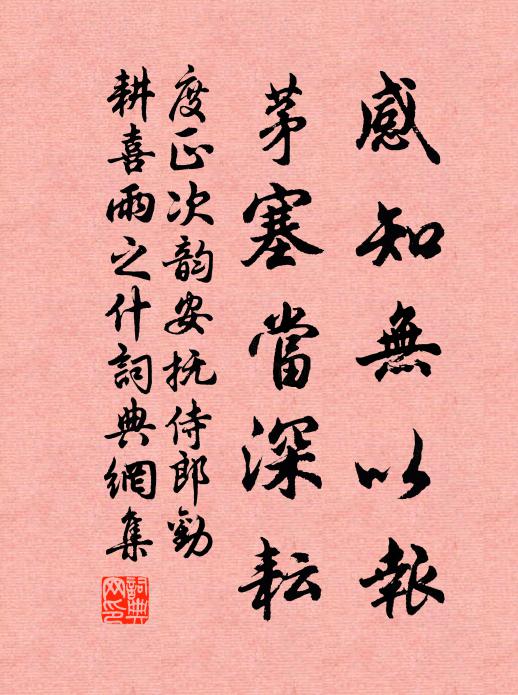 感知無以報
茅塞當深耘
度正次韵安抚侍郎勸
耕喜雨之什詞典網集
詞典网印